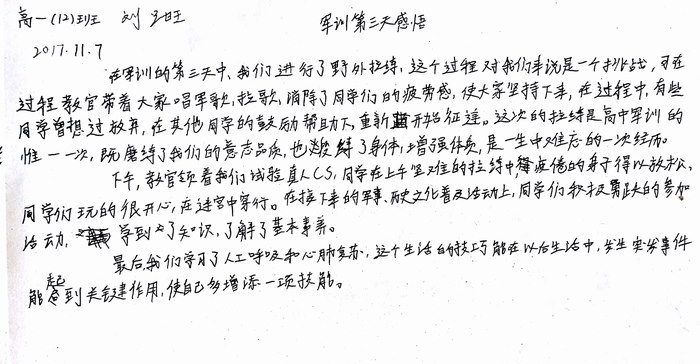 高一(12)班 刘 旺 军训第三天感悟
2017.11.7
在军训的第三天中,我们进行了野外拉练,这个过程对我们来说是一个挑战,可在
过程教官带着大家唱军歌,拉歌,消除了同学们的疲劳感,使大家坚持下来,在过程中,有些
同学曾想过放弃,在其他同学的鼓励帮助下,重新开始征途。这次的拉练是高中军训的
惟一一次,既磨练了我们的意志品质,也锻练了身体,增强体质,是一生中难忘的一次经历。
下午,教官领着我们试验真人CS,同学在上午坚难的拉练中疲倦的身子得以放松,
同学们玩的很开心,在迷宫中穿行。在接下来的军事、历史文化普及活动上,同学们积极踊跃的参加
活动,学到了知识,了解了基本素养。
最后,我们学习了人工呼吸和心肺复苏,这个生活的技巧能在以后生活中,发生突发事件
能起到关键作用,使自己多增添一项技能。